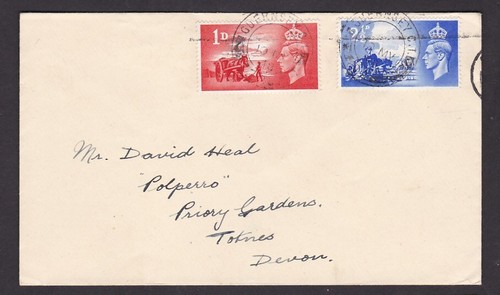 1D
2½D
GUERNSEY
GUERNSEY C.I.
Mr. David Heal
"Polperro"
Priory Gardens.
Totnes
Devon.